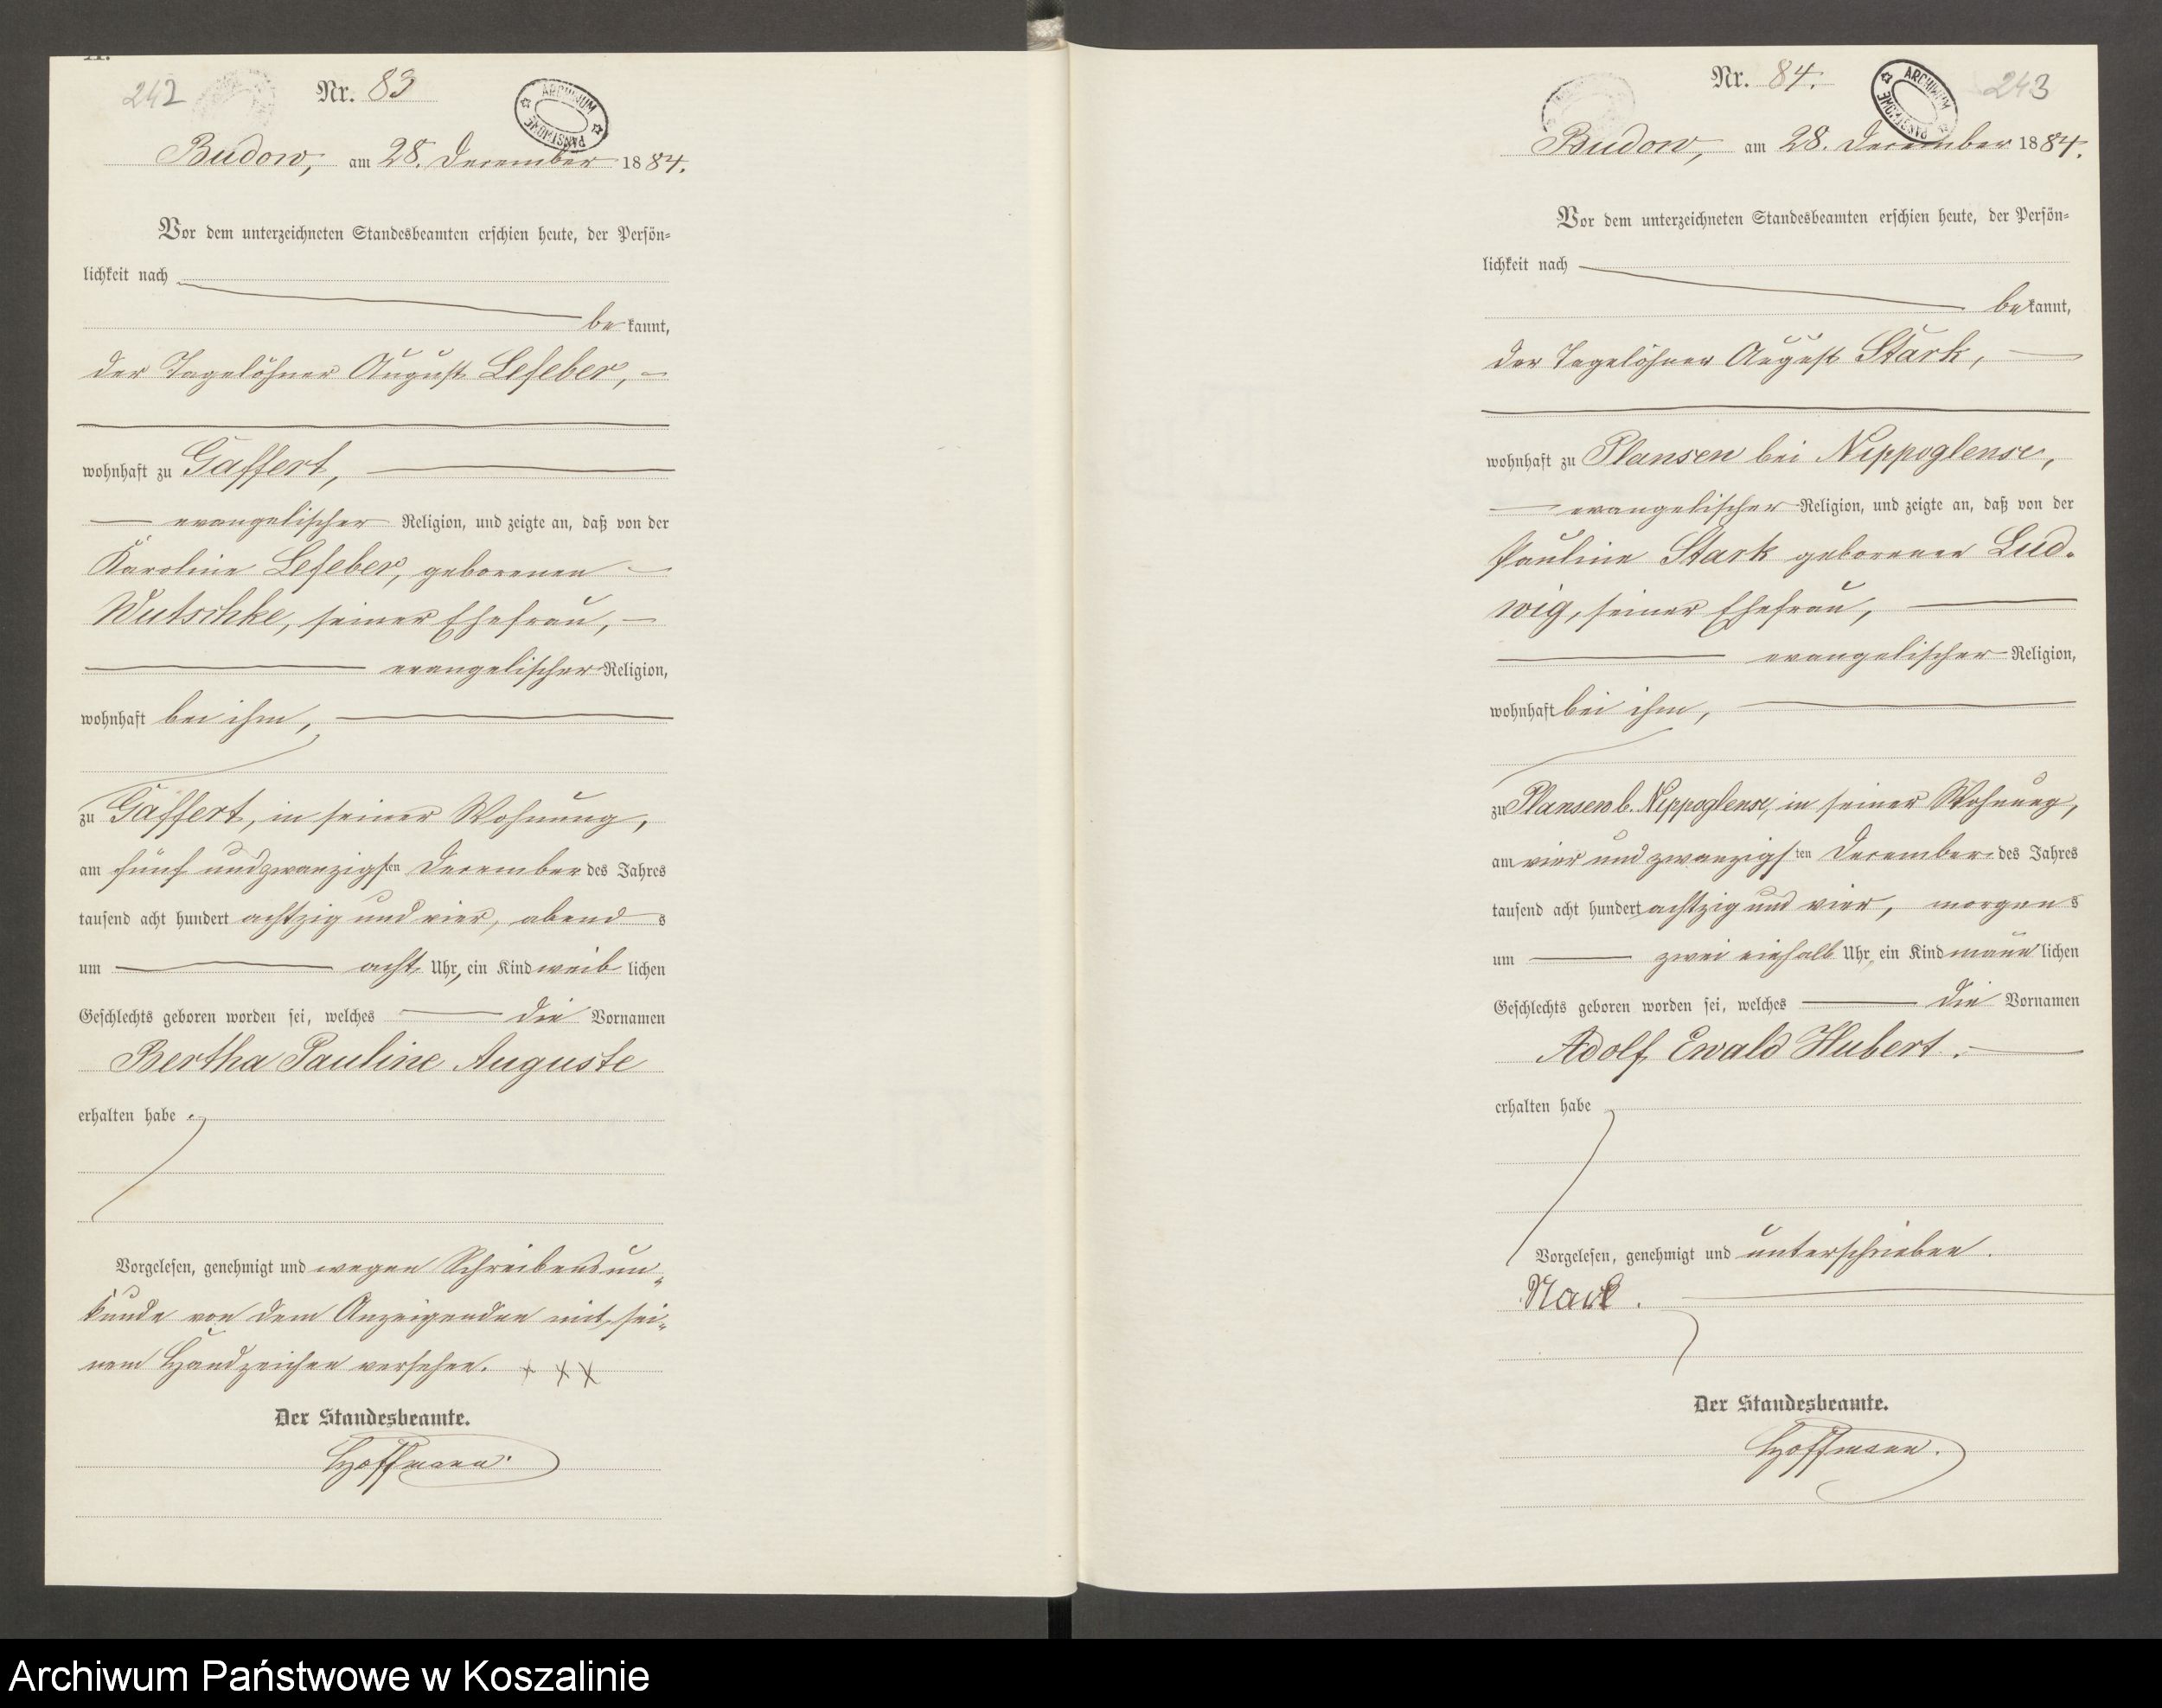 242
Nr. 83
ARCHIWUM PAŃSTWOWE
Budow, am 28. December 1884.
Vor dem unterzeichneten Standesbeamten erschien heute, der Persön-
lichkeit nach
bekannt,
der Tagelöhner August Lefeber,
wohnhaft zu Gaffert,
evangelischer Religion, und zeigte an, daß von der
Karoline Lefeber, geborenen
Wutschke, seiner Ehefrau,
evangelischer Religion,
wohnhaft bei ihm,
zu Gaffert, in seiner Wohnung,
am fünf undzwanzigsten December des Jahres
tausend acht hundert achtzig und vier, abends
um acht Uhr, ein Kind weiblichen
Geschlechts geboren worden sei, welches die Vornamen
Bertha Pauline Auguste
erhalten habe.
Vorgelesen, genehmigt und wegen Schreibensun-
kunde von dem Anzeigenden mit sei-
nem Handzeichen versehen. + + +
Der Standesbeamte.
Hoffmann.
Nr. 84.
ARCHIWUM PAŃSTWOWE
243
Budow, am 28. December 1884.
Vor dem unterzeichneten Standesbeamten erschien heute, der Persön-
lichkeit nach
bekannt,
der Tagelöhner August Stark,
wohnhaft zu Plansen bei Nippoglense,
evangelischer Religion, und zeigte an, daß von der
Pauline Stark geborenen Lud-
wig, seiner Ehefrau,
evangelischer Religion,
wohnhaft bei ihm,
zu Plansen b. Nippoglense, in seiner Wohnung,
am vier und zwanzigsten December des Jahres
tausend acht hundert achtzig und vier, morgens
um zwei einhalb Uhr, ein Kind männlichen
Geschlechts geboren worden sei, welches die Vornamen
Adolf Ewald Hubert.
erhalten habe
Vorgelesen, genehmigt und unterschrieben.
Der Standesbeamte.
Hoffmann.
Archiwum Państwowe w Koszalinie